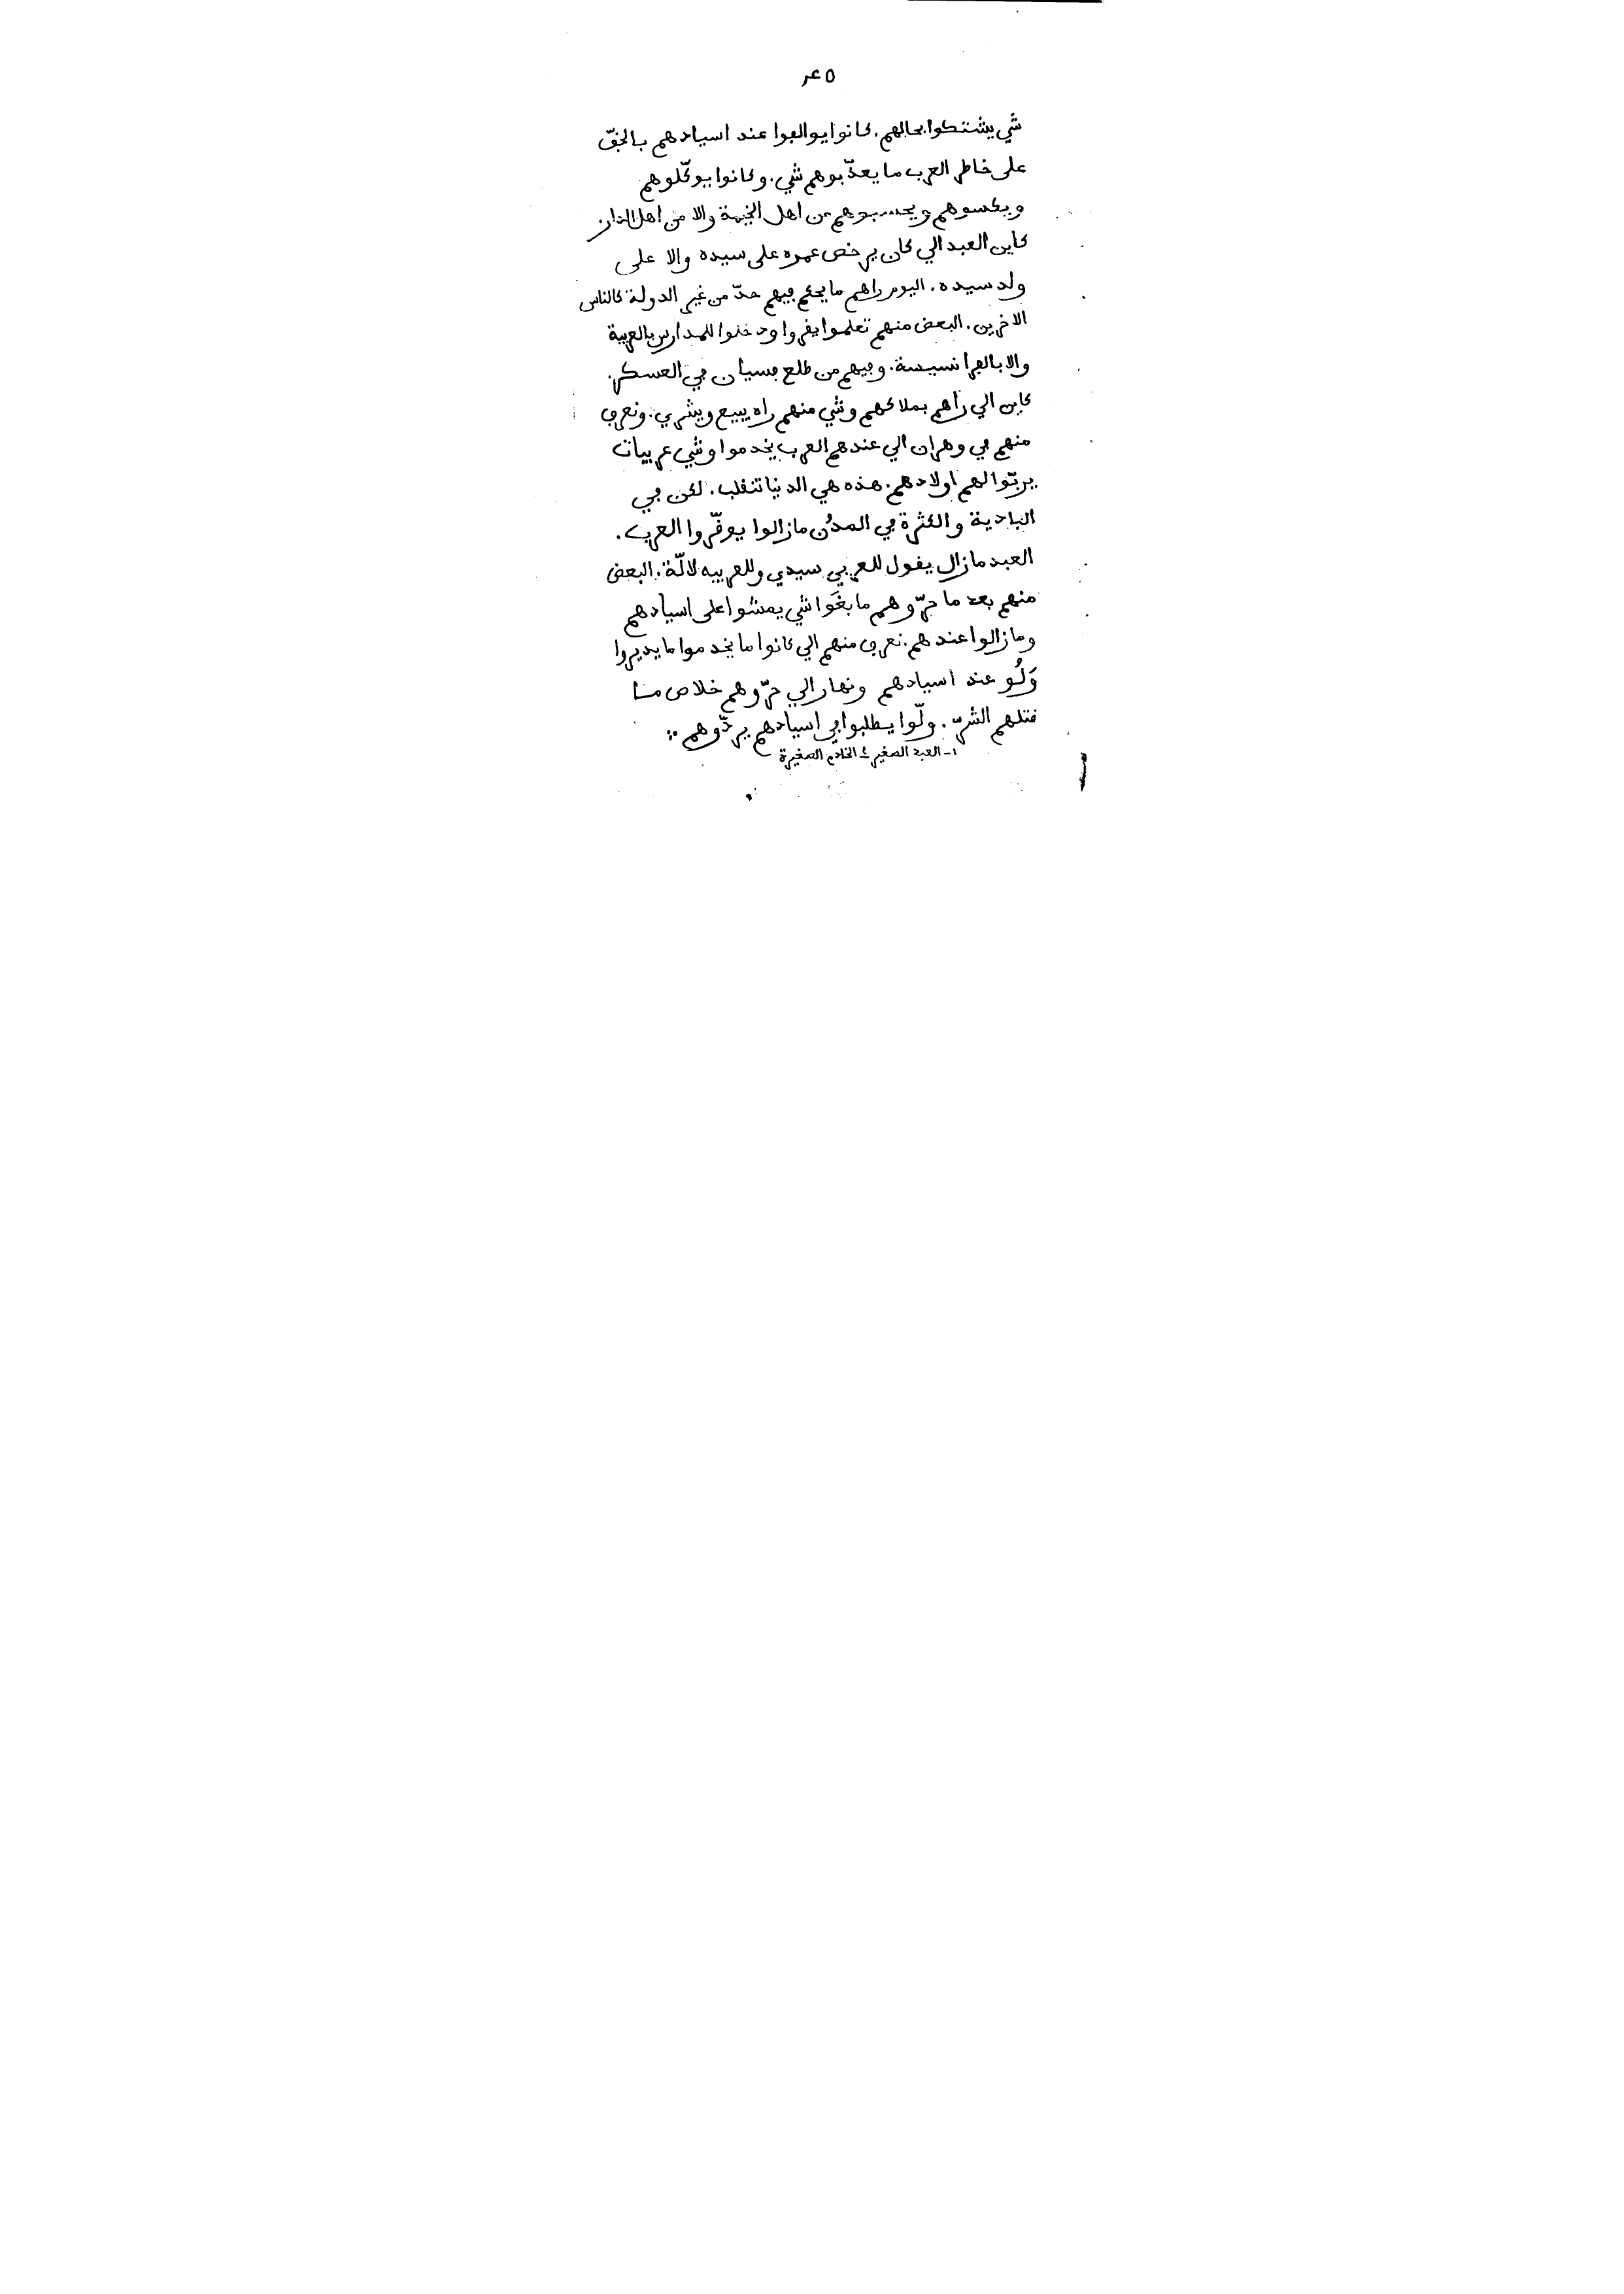 ٢٤٥
شي يشتكوا بحالهم. كانوا يوالفوا عند اسيادهم بالخفّ
على خاطر العرب ما يعذّبوهم شي. وكانوا يوكّلوهم
ويكسوهم ويحسبوهم من اهل الخيمة والا من اهل الدار
كاين العبد الي كان يرخص عمره على سيده والا على
ولد سيده. اليوم راهم ما يحكم فيهم حدّ من غير الدولة كالناس
الاخرين. البعض منهم تعلموا يقروا ودخلوا للمدارس بالعربية
والا بالفرانسيسة. وفيهم من طلع فسيان في العسكر.
كاين الي راهم بملاكهم وشي منهم راه يبيع ويشري. ونعرف
منهم في وهران الي عندهم العرب يخدموا وشي عربيات
يربّوا لهم اولادهم. هذه هي الدنيا تنقلب. لكن في
البادية والكثرة في المدُن مازالوا يوقّروا العرب.
العبد مازال يقول للعربي سيدي وللعربيه لالّة. البعض
منهم بعد ما حرّوهم ما بغَوا شي يمشوا على اسيادهم
ومازالوا عندهم. نعرف منهم الي كانوا ما يخدموا ما يديروا
وَلُو عند اسيادهم ونهار الي حرّوهم خلاص ما
قتلهم الشرّ. ولّوا يطلبوا في اسيادهم يردّوهم :
١ - العبد الصغير ٢ الخادم الصغيرة